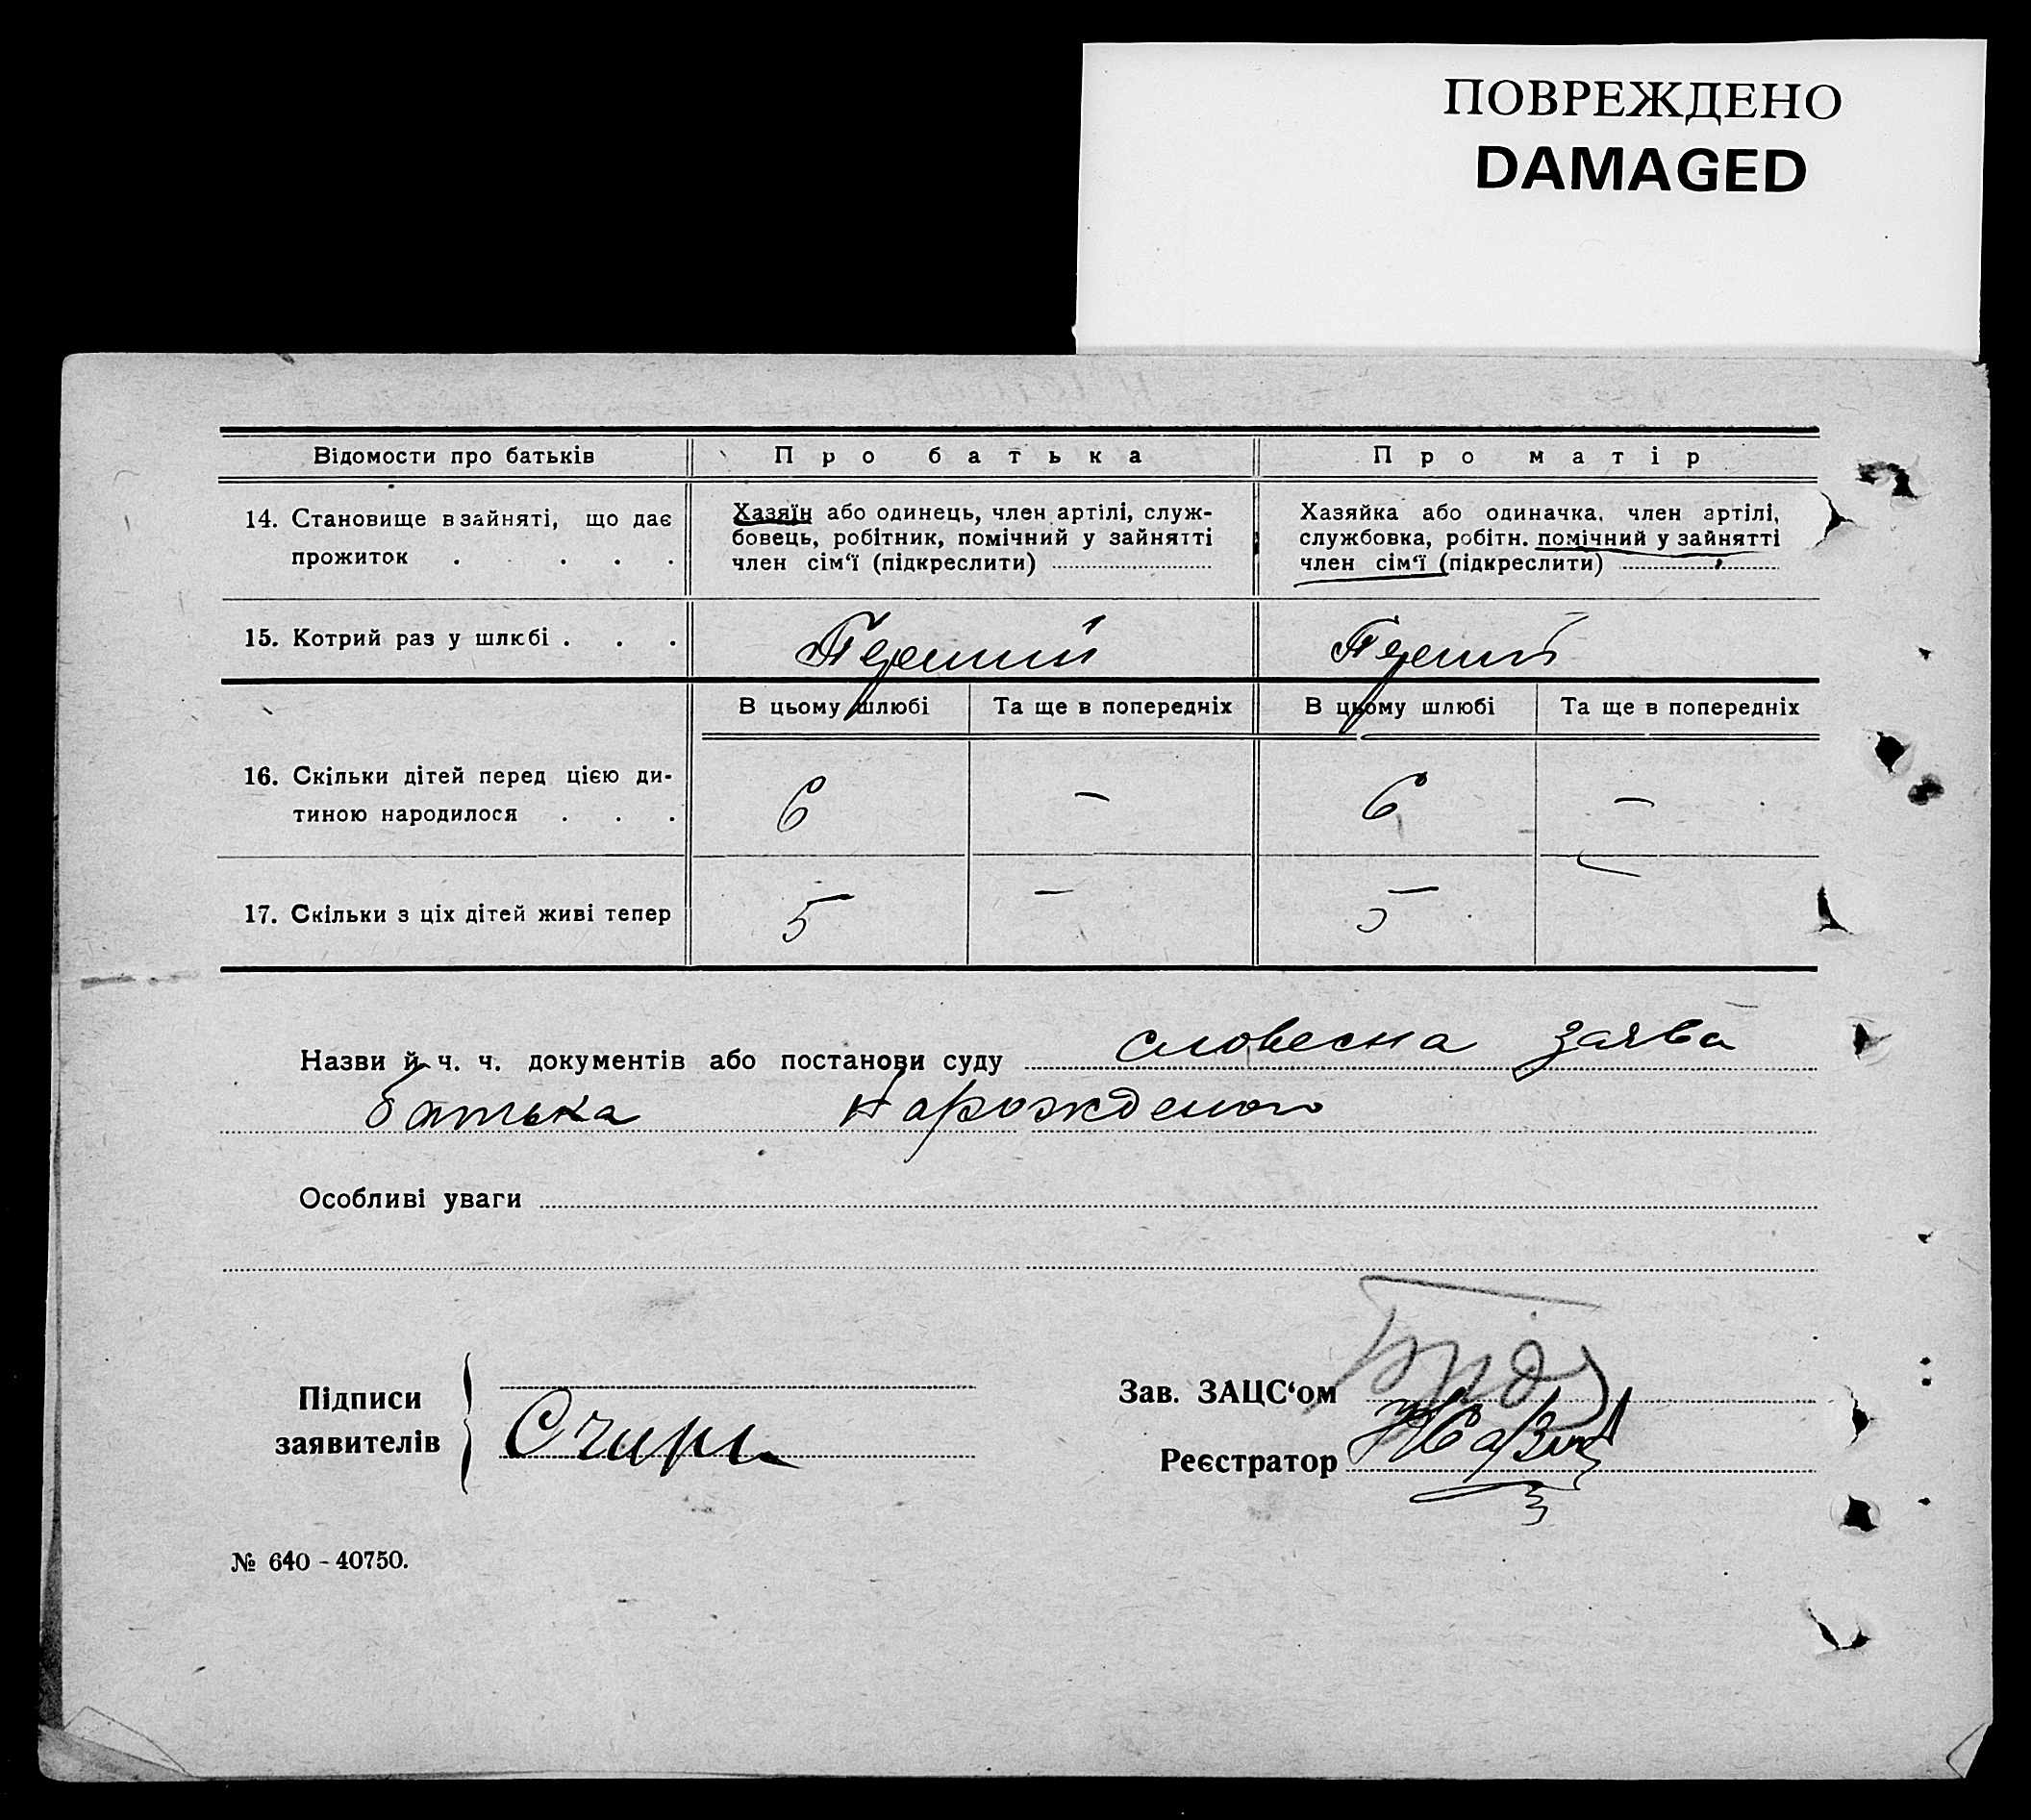 ПОВРЕЖДЕНО
DAMAGED
Відомости про батьків
Про батька
Про матір
14. Становище в зайняті, що дає
прожиток . . . .
Хазяїн або одинець, член артілі, служ-
бовець, робітник, помічний у зайнятті
член сім‘ї (підкреслити)
Хазяйка або одиначка, член артілі,
службовка, робітн. помічний у зайнятті
член сім‘ї (підкреслити)
15. Котрий раз у шлюбі . . .
Перший
Перший
В цьому шлюбі
Та ще в попередніх
В цьому шлюбі
Та ще в попередніх
16. Скільки дітей перед цією ди-
тиною народилося . . .
6
—
6
—
17. Скільки з ціх дітей живі тепер
5
—
5
Назви й ч. ч. документів або постанови суду словесна заява
батька нарожденого
Особливі уваги
Підписи
заявителів
Зав. ЗАЦС‘ом
Реєстратор
№ 640 - 40750.